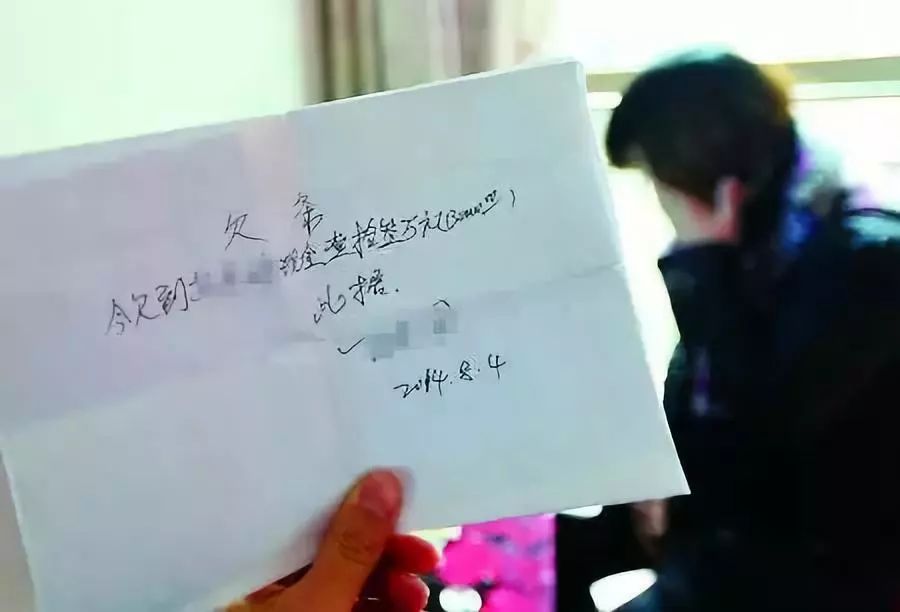 欠 条
今欠到 现金叁拾叁万元(
此据.
2014.8.4